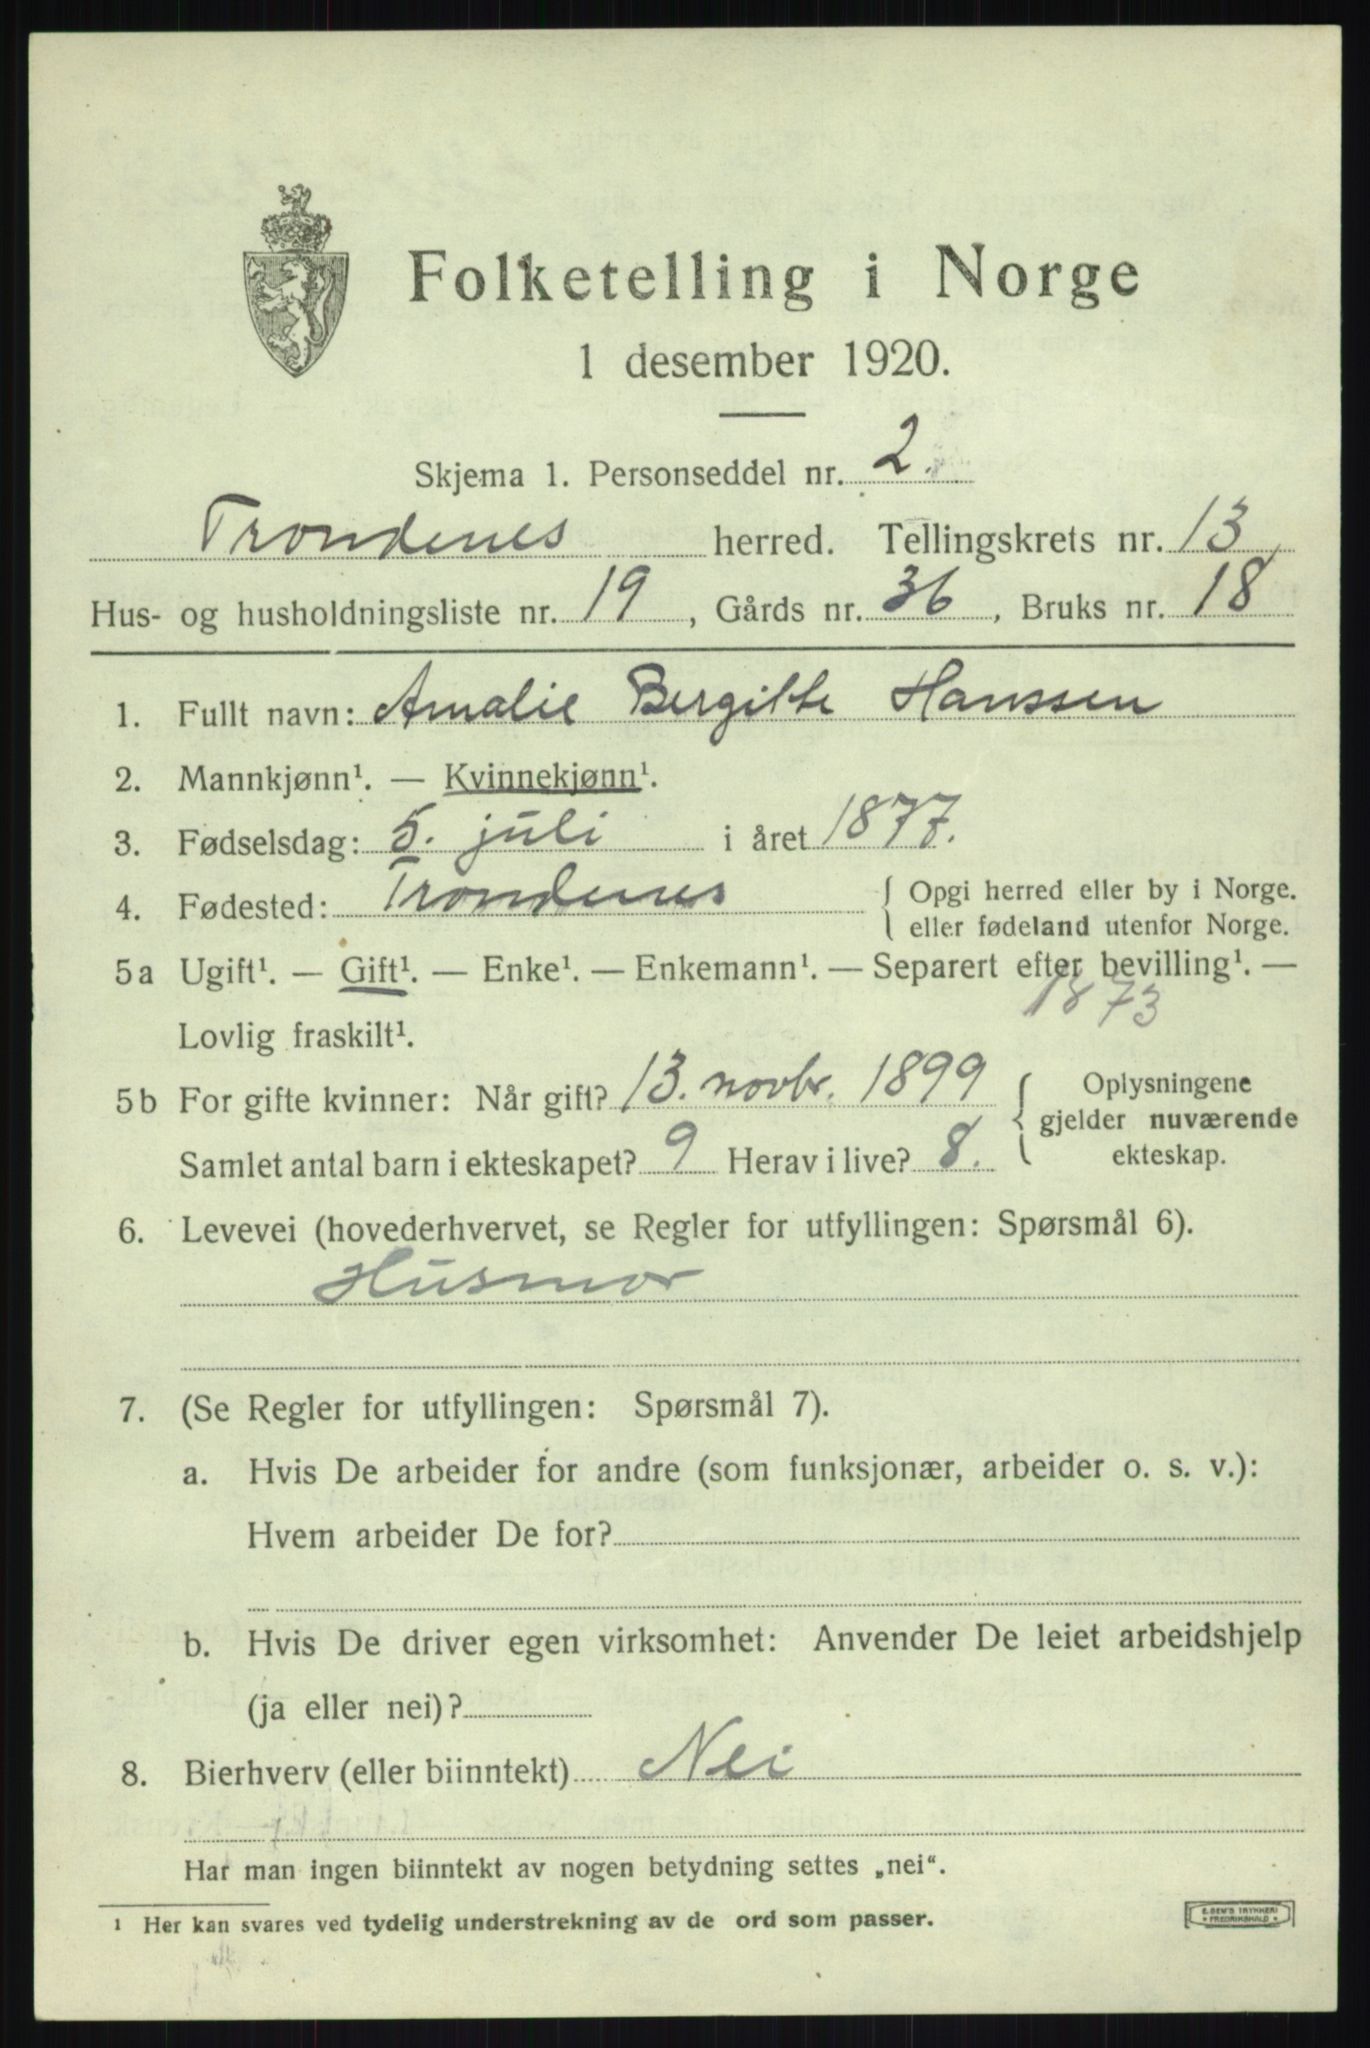 Folketelling i Norge
1 desember 1920.
Skjema 1. Personseddel nr. 2.
Trondenes herred. Tellingskrets nr. 13
Hus- og husholdningsliste nr. 19, Gårds nr. 36, Bruks nr. 18
1. Fullt navn: Amalie Bergitte Hanssen
2. Mannkjønn¹. — Kvinnekjønn¹.
3. Fødselsdag: 5. juli i året 1877.
4. Fødested: Trondenes { Opgi herred eller by i Norge.
eller fødeland utenfor Norge.
5a Ugift¹. — Gift¹. — Enke¹. — Enkemann¹. — Separert efter bevilling¹. —
1873
Lovlig fraskilt¹.
5b For gifte kvinner: Når gift? 13. novbr. 1899 { Oplysningene
gjelder nuværende
Samlet antal barn i ekteskapet? 9 Herav i live? 8. ekteskap.
6. Levevei (hovederhvervet, se Regler for utfyllingen: Spørsmål 6).
Husmor
7. (Se Regler for utfyllingen: Spørsmål 7).
a. Hvis De arbeider for andre (som funksjonær, arbeider o. s. v.):
Hvem arbeider De for?
b. Hvis De driver egen virksomhet: Anvender De leiet arbeidshjelp
(ja eller nei)?
8. Bierhverv (eller biinntekt) Nei
Har man ingen biinntekt av nogen betydning settes „nei“.
¹ Her kan svares ved tydelig understrekning av de ord som passer.
E. SEM'S TRYKKERI
FREDRIKSHALD